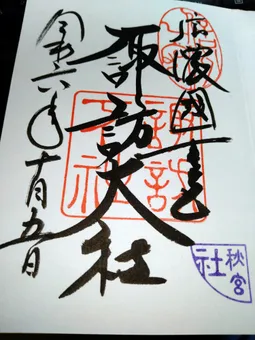 信濃國一之宮
諏訪大社
令和六年十月五日
諏訪大社
秋宮
社